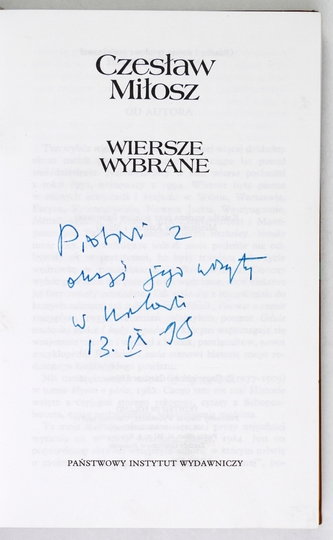 Czesław
Miłosz
WIERSZE
WYBRANE
Piotrowi z
okazji jego wizyty
w Krakowie
13. IX 95
PAŃSTWOWY INSTYTUT WYDAWNICZY